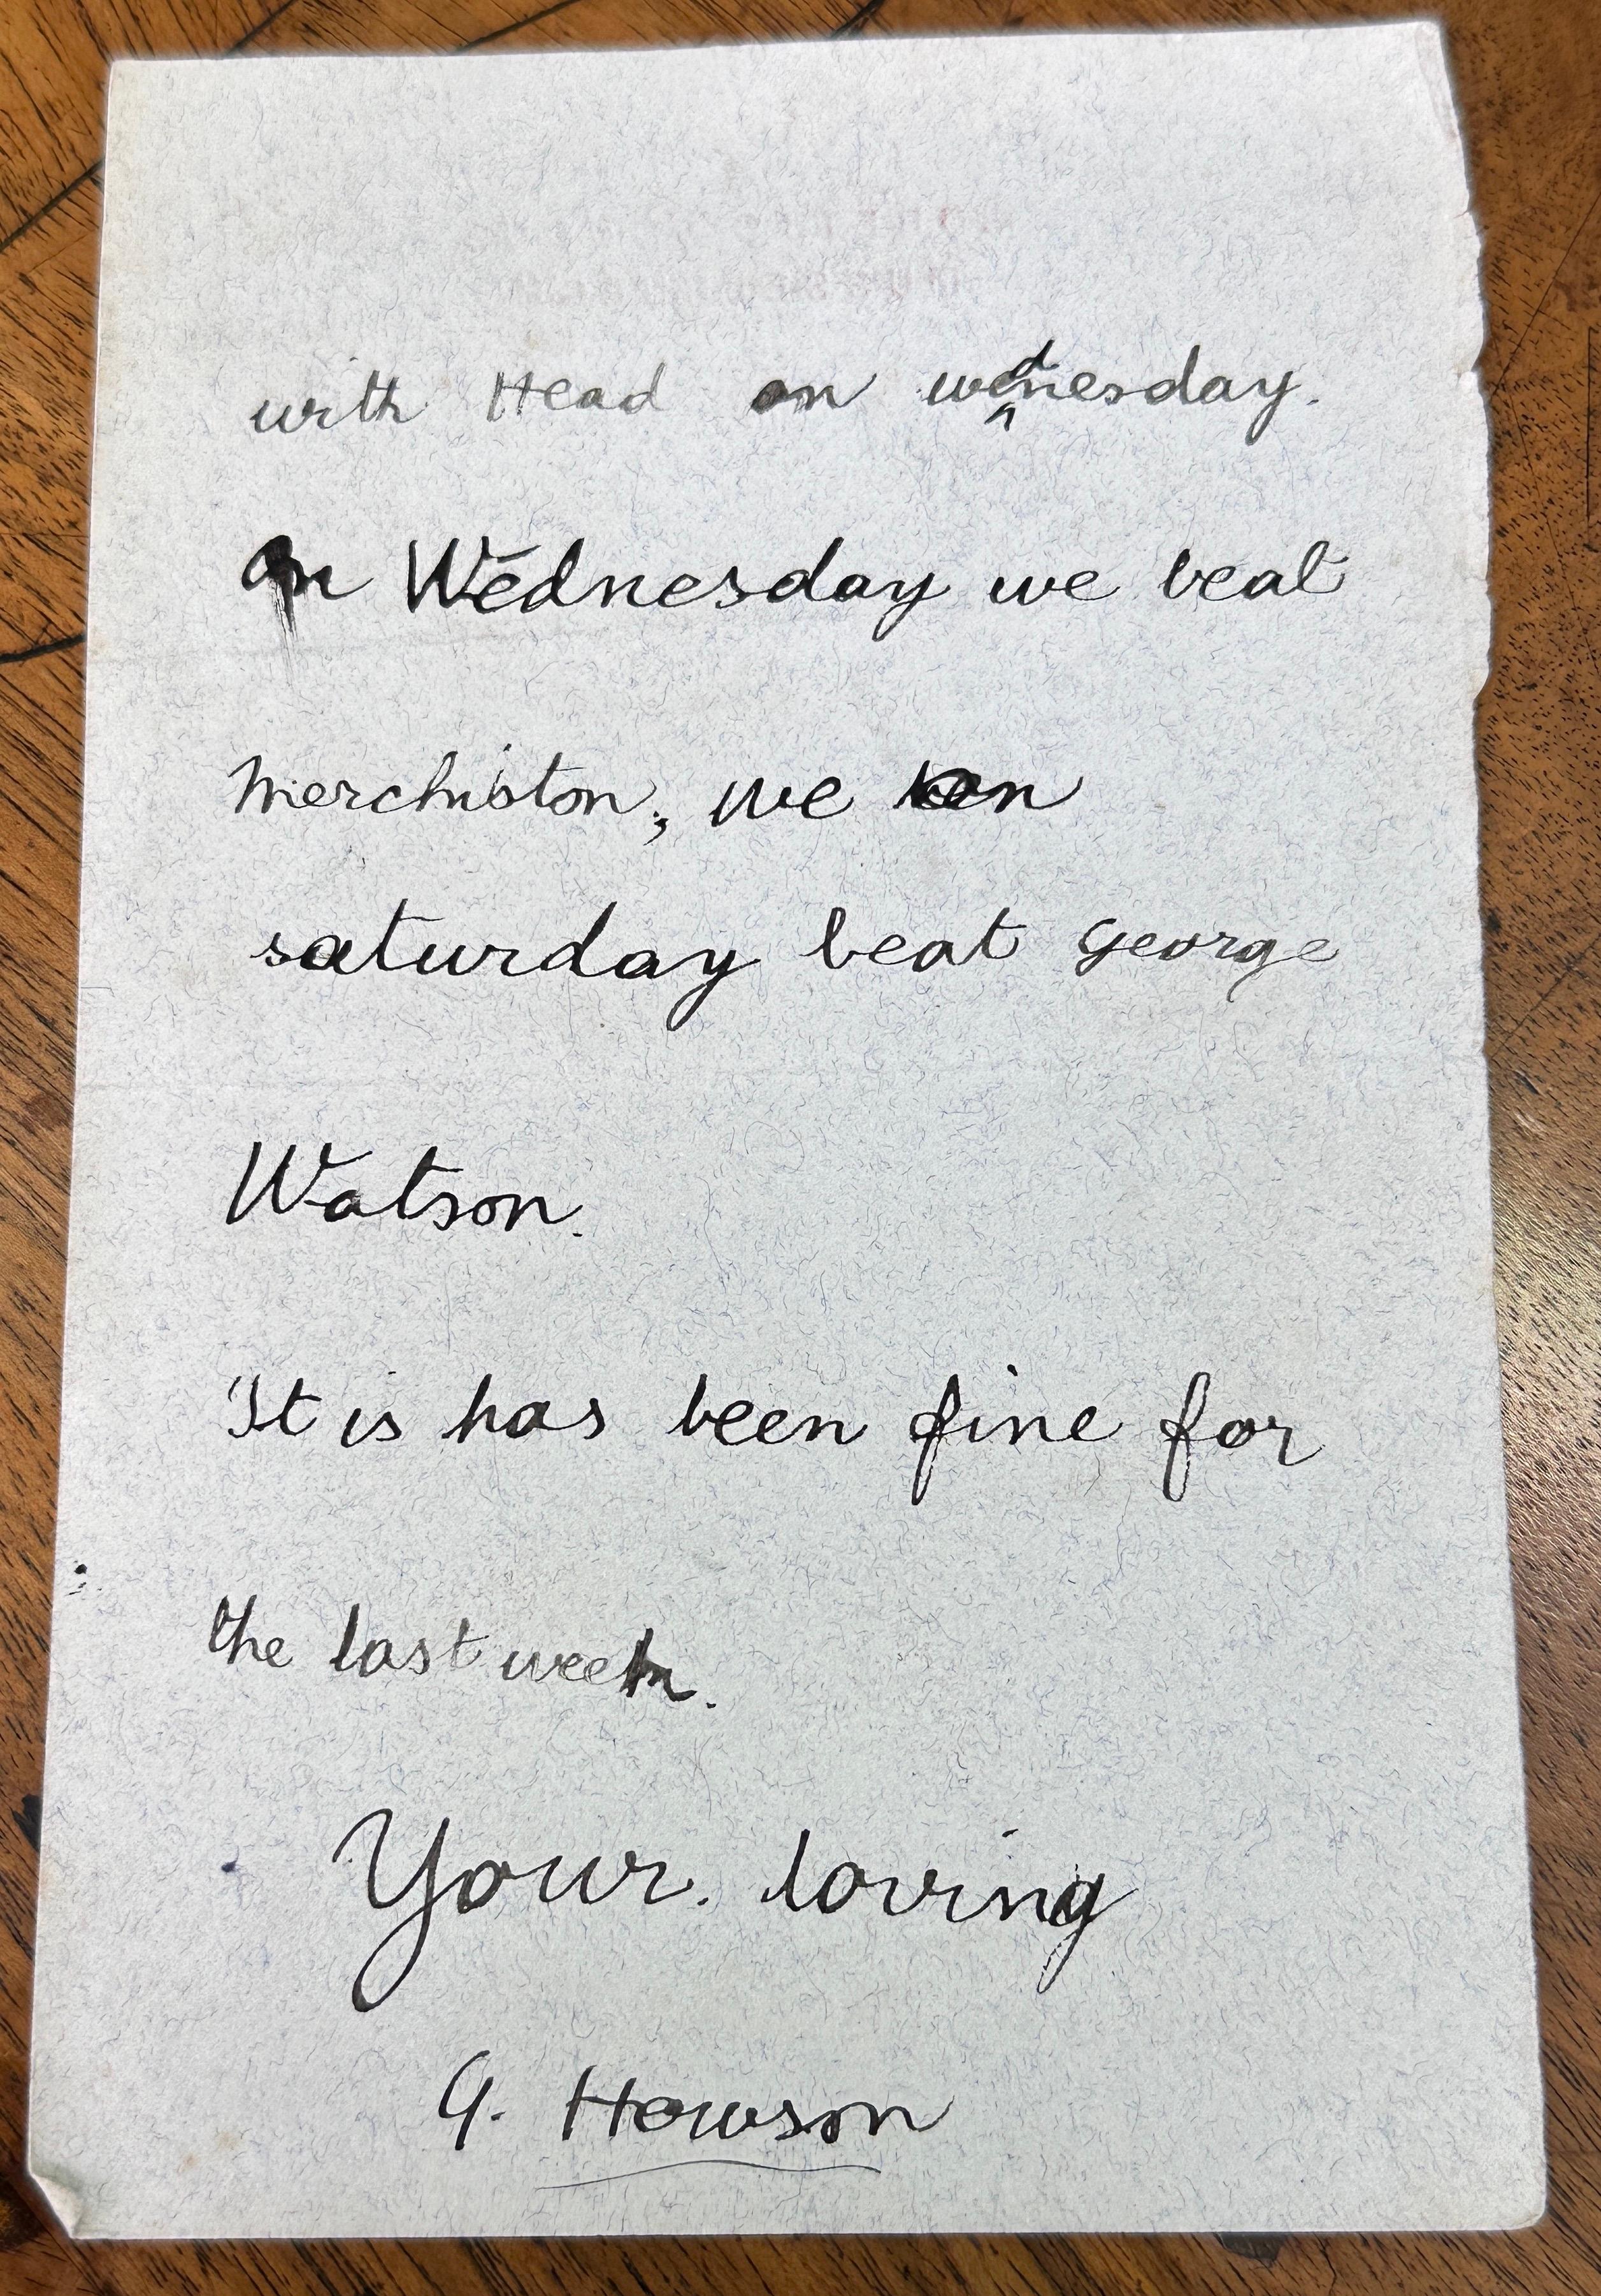 with Head on wednesday.
on Wednesday we beat
Merchiston, we on
saturday beat George
Watson.
It is has been fine for
the last week.
Your. loving
G. Howson